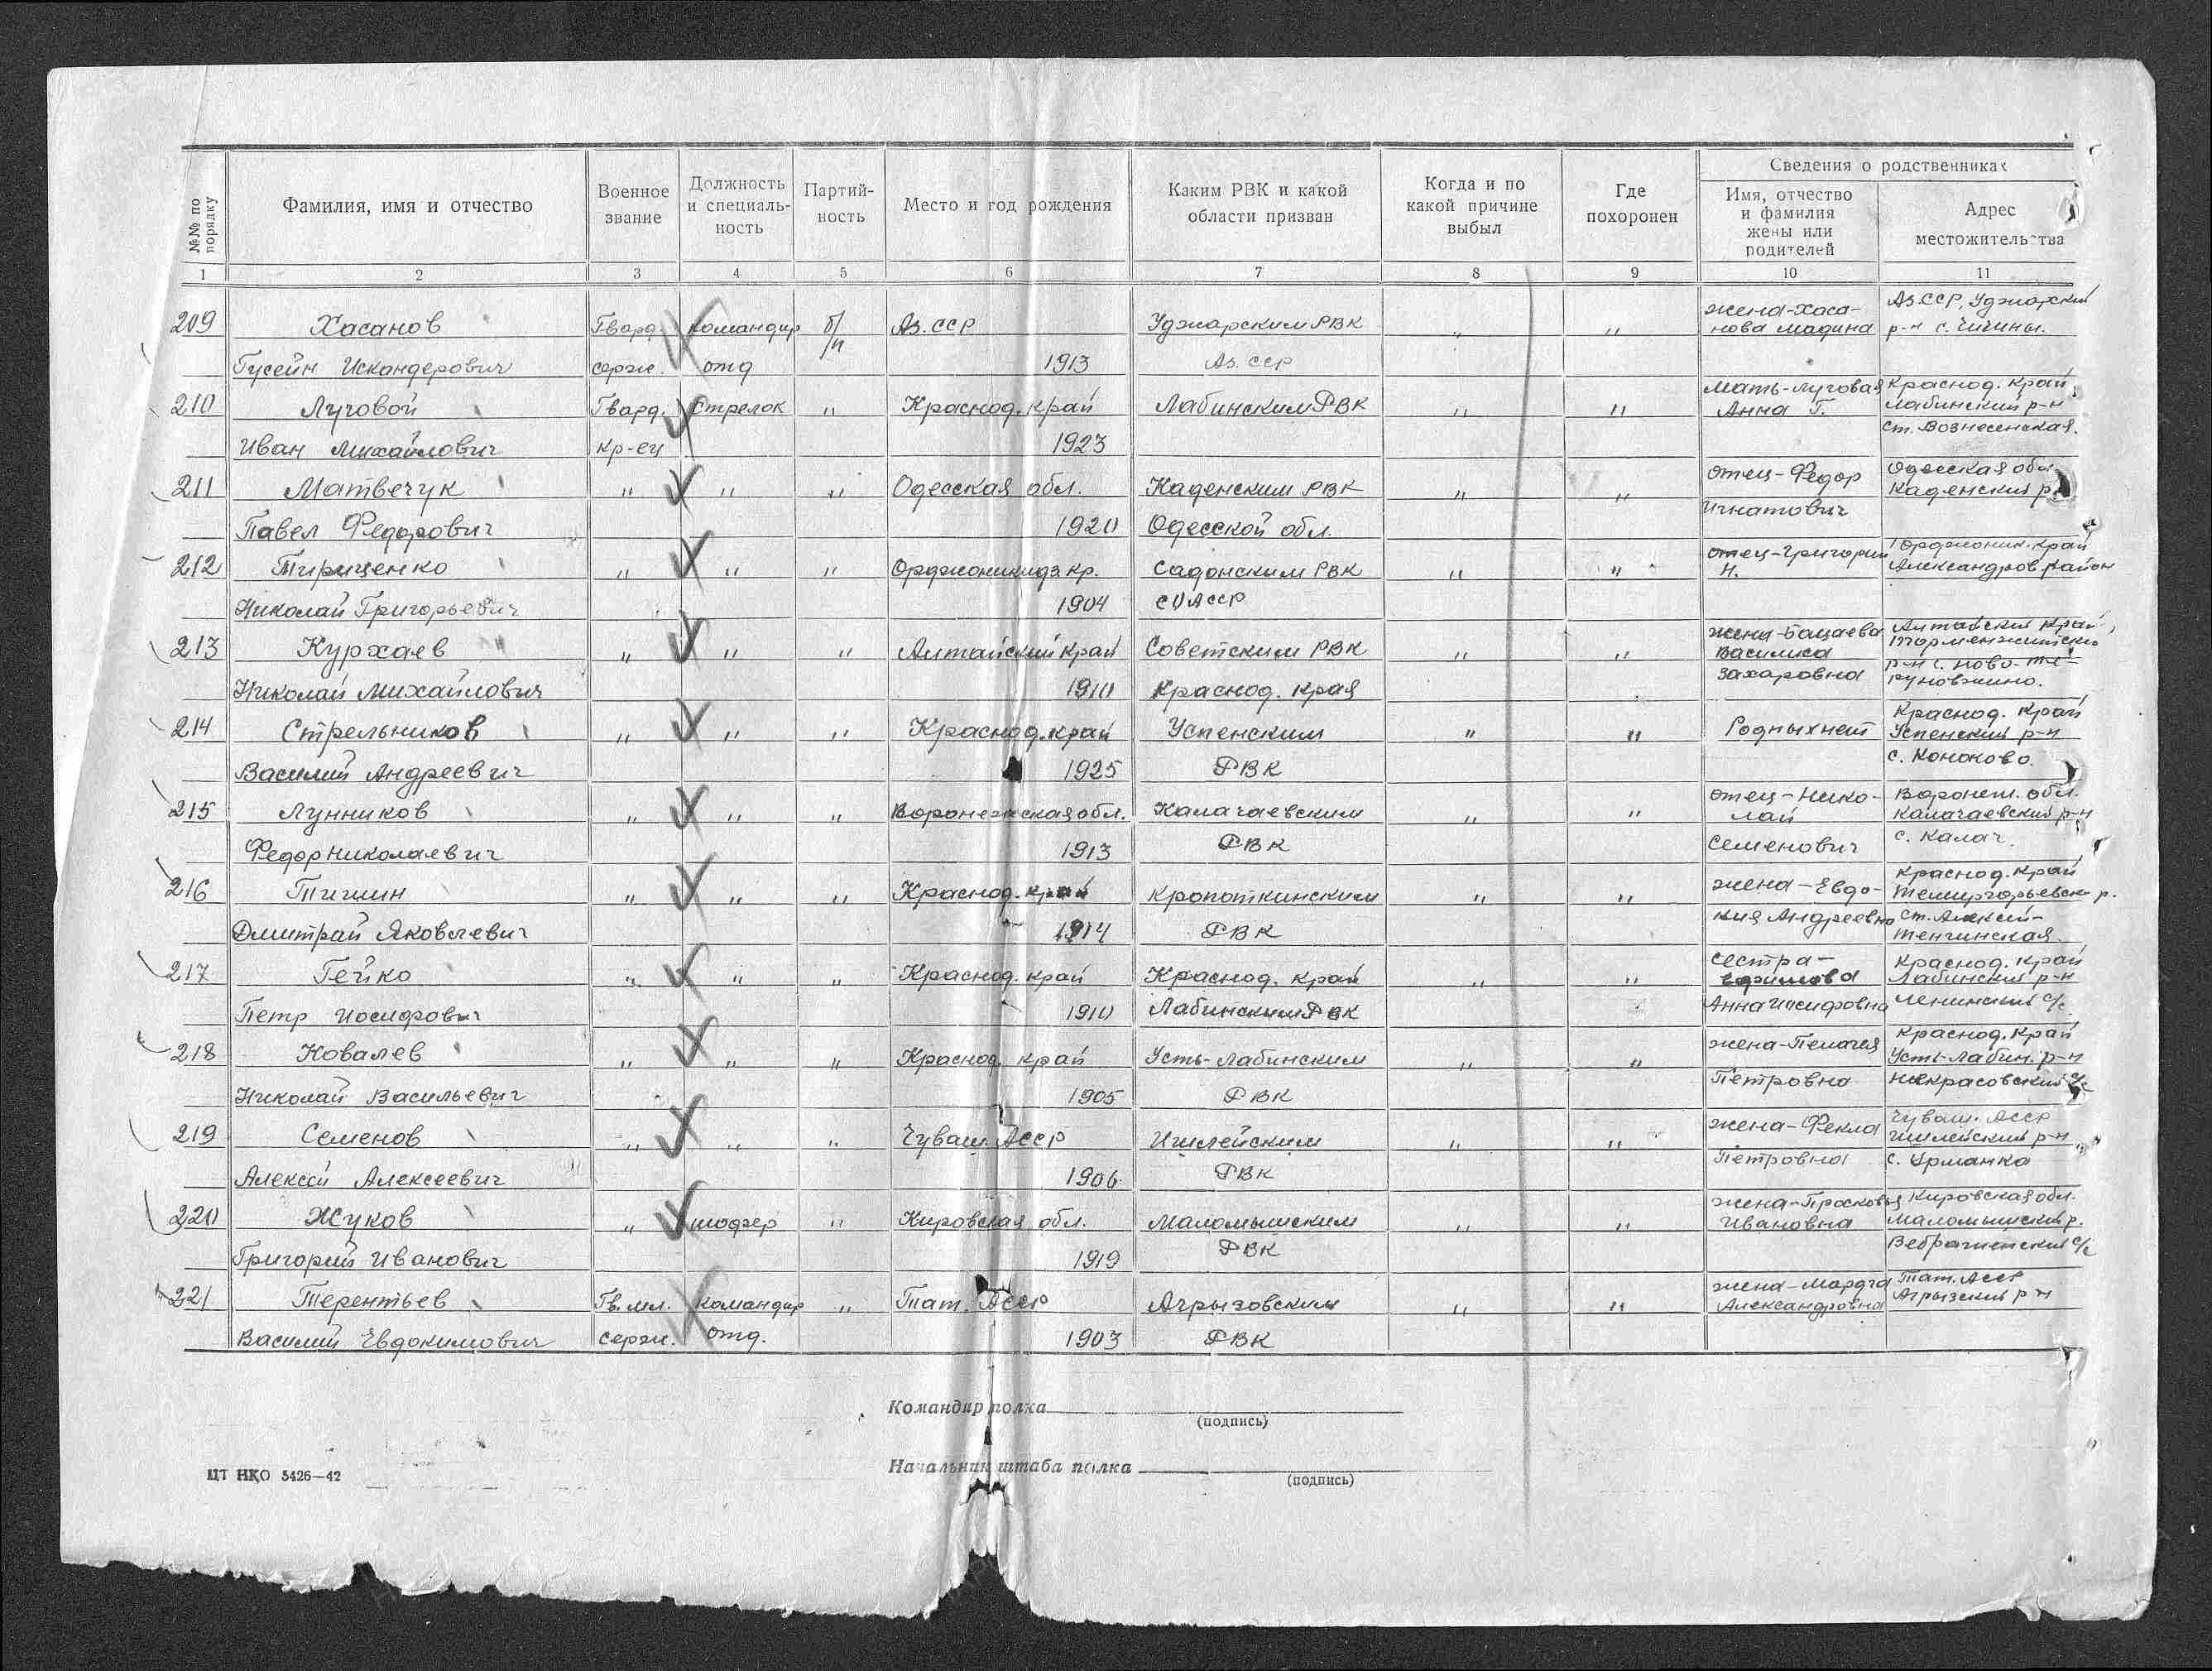 №№ по порядку
Фамилия, имя и отчество
Военное звание
Должность и специальность
Партийность
Место и год рождения
Каким РВК и какой области призван
Когда и по какой причине выбыл
Где похоронен
Сведения о родственниках
Имя, отчество и фамилия жены или родителей
Адрес местожительства
1 2 3 4 5 6 7 8 9 10 11
209 Хасанов Гвард. командир б/п Аз. ССР Уджарским РВК " " жена-Хаса- Аз.ССР, Уджарский
нова Мадина р-н с.
Гусейн Искандерович серж. отд 1913 Аз. ССР
210 Луговой Гвард. Стрелок " Краснод. край Лабинским РВК " " Мать-Луговая Краснод. край
Анна Г. Лабинский р-н
Иван Михайлович кр-ец 1923 ст. Вознесенская.
211 Матвечук " " " Одесская обл. Каденским РВК " " отец-Федор Одесская обл
Каденский р
Павел Федорович 1920 Одесской обл. Игнатович
212 Тириценко " " " Орджоникидз. кр. Садонским РВК " " отец-Григорий Орджоник. край
Н. Александров. район
Николай Григорьевич 1904 СОАССР
213 Курхаев " " " Алтайский край Советским РВК " " жена-Бацаева Алтайский край,
Василиса
Николай Михайлович 1910 Краснод. края Захаровна р-н с. Ново-
214 Стрельников " " " Краснод. край Успенским " " Родных нет Краснод. край
Успенский р-н
Василий Андреевич 1925 РВК с. Коноково.
215 Лунников " " " Воронежская обл. Калачаевским " " отец-Нико- Воронеж. обл.
лай Калачаевский р-н
Федор Николаевич 1913 РВК Семенович с. Калач.
216 Тишин " " " Краснод. край Кропоткинским " " жена-Евдо- Краснод. край
Темиргоевск р.
Дмитрай Яковлевич 1914 РВК кия Андреевна ст.
тенгинская
217 Гейко " " " Краснод. край Краснод. край " " сестра- Краснод. край
Ефимова Лабинский р-н
Петр Иосифович 1910 Лабинским РВК Анна Иосифовна Ленинский с/с
218 Ковалев " " " Краснод. край Усть-Лабинским " " жена-Пелагея Краснод. край
Усть-Лабин. р-н
Николай Васильевич 1905 РВК Петровна Некрасовский с/с
219 Семенов " " " Чуваш. АССР Ишлейским " " жена-Фекла Чуваш. АССР
Ишлейский р-н
Алексей Алексеевич 1906 РВК Петровна с. Урманка
220 Жуков " шофер " Кировская обл. Маломышским " " жена-Просковья Кировская обл.
Ивановна Маломышский р.
Григорий Иванович 1919 РВК
221 Терентьев Гв. мл. командир " Тат. АССР Агрызовским " " жена-Марфа Тат. АССР
Александровна Агрызский р-н
Василий Евдокимович серж. отд. 1903 РВК
Командир полка
(подпись)
Начальник штаба полка
(подпись)
ЦТ НКО 5426—42